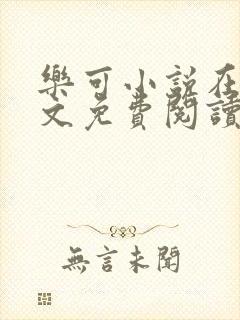 樂可小說在
文免費閱讀
無言未聞